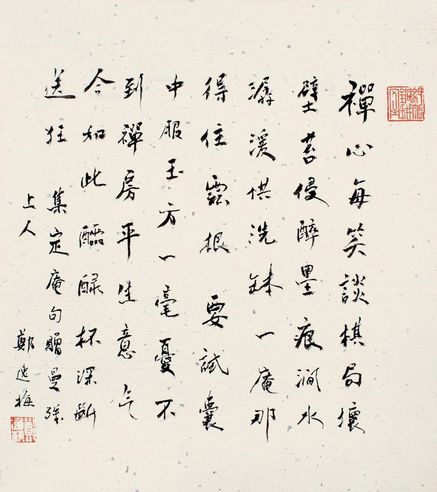 禪心每笑談棋局壞
壁苔侵醉墨痕澗水
潺湲供洗鉢一庵那
得住靈根 要試囊
中服玉方一毫憂不
到禪房平生意氣
今如此醽醁杯深斷
送狂 集定庵句贈曼殊
上人
鄭逸梅